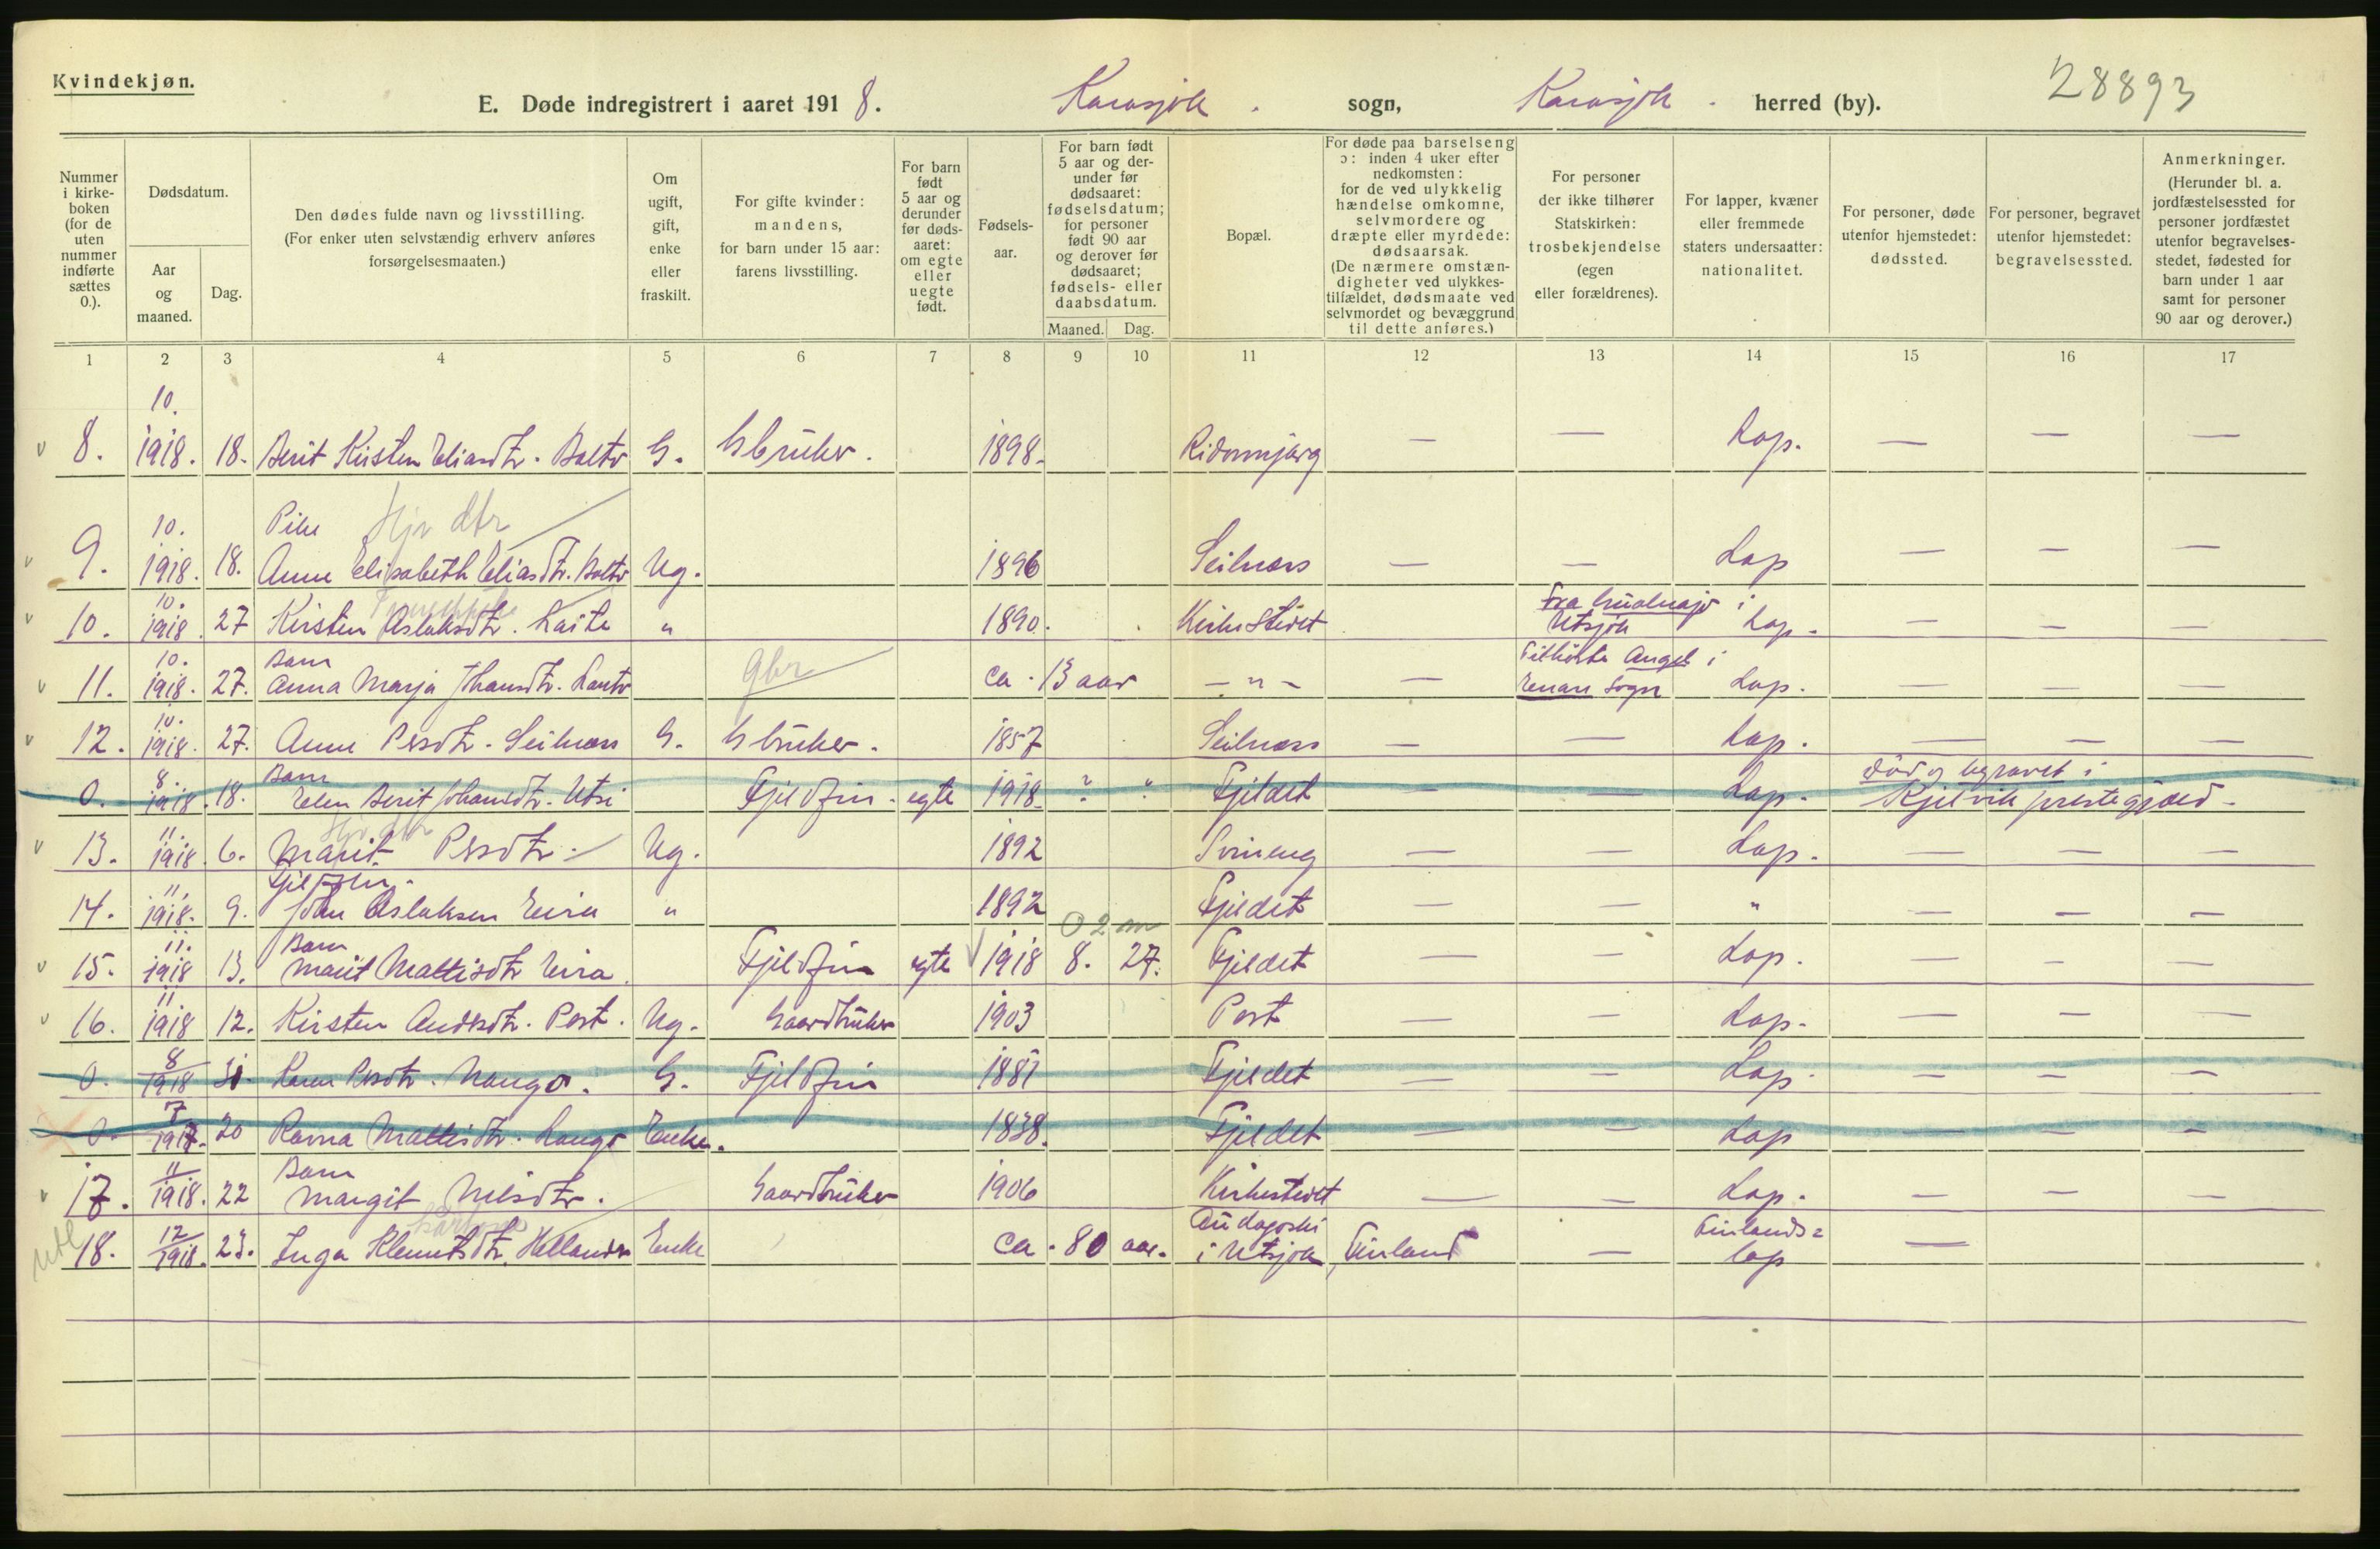 Kvindekjøn.
E. Døde indregistrert i aaret 1918. Karasjok. sogn, Karasjok. herred (by). 28893
Nummer i kirke-boken (for de uten nummer indførte sættes 0.).
Dødsdatum.
Aar og maaned.
Dag.
Den dødes fulde navn og livsstilling.
(For enker uten selvstændig erhverv anføres forsørgelsesmaaten.)
Om ugift, gift, enke eller fraskilt.
For gifte kvinder: mandens, for barn under 15 aar: farens livsstilling.
For barn født 5 aar og derunder før døds-aaret: om egte eller uegte født.
Fødsels-aar.
For barn født 5 aar og der-under før dødsaaret: fødselsdatum; for personer født 90 aar og derover før dødsaaret; fødsels- eller daabsdatum.
Maaned. Dag.
Bopæl.
For døde paa barselseng ɔ: inden 4 uker efter nedkomsten: for de ved ulykkelig hændelse omkomne, selvmordere og dræpte eller myrdede: dødsaarsak. (De nærmere omstæn-digheter ved ulykkes-tilfældet, dødsmaate ved selvmordet og bevæggrund til dette anføres.)
For personer der ikke tilhører Statskirken: trosbekjendelse (egen eller forældrenes).
For lapper, kvæner eller fremmede staters undersaatter: nationalitet.
For personer, døde utenfor hjemstedet: dødssted.
For personer, begravet utenfor hjemstedet: begravelsessted.
Anmerkninger. (Herunder bl. a. jordfæstelsessted for personer jordfæstet utenfor begravelses-stedet, fødested for barn under 1 aar samt for personer 90 aar og derover.)
1 2 3 4 5 6 7 8 9 10 11 12 13 14 15 16 17
10.
8. 1918. 18. Berit Kirsten Eliasdtr. Balto G. Gbruker. 1898. Ridonnjarg — — Lap. — — —
10. Pike Hjv dtr
9. 1918. 18. Anne Elisabeth Eliasdtr. Balto Ug. 1896 Seilnæs — — Lap — — —
10. Fra i
10. 1918. 27 Kirsten Aslaksdtr. Laiti " 1890. Kirkestedet Utsjok Lap. — — —
10. Barn gbr Tilhörte Angel i
11. 1918. 27. Anna Marja Johansdtr. ca. 13 aar — " — — Enare Sogn Lap. — — —
10.
12. 1918. 27. Anne Persdtr. Seilnæs G. Gbruker. 1857 Seilnæs — — Lap. — — —
8. Barn död og begravet i
0. 1918. 18. Elen Berit Johansdtr. Utsi Fjeldfin. egte 1918. ? " Fjeldet — — Lap. Kjelvik prestegjæld.
11. Hjv dtr
13. 1918. 6. Marit Persdtr. Ug. 1892 — — Lap. — — —
11.
14. 1918. 9. Aslaksen Eira " 1892 Fjeldet — — " — — —
11. Barn 0 2 m
15. 1918 13. Marit Mattisdtr Eira. Fjeldfin egte 1918 8. 27. Fjeldet — — Lap. — — —
11.
16. 1918 12. Kirsten Andersdtr. Port. Ug. Gaardbruker 1903 Port — — Lap. — — —
8
0. 1918 31. Karen Persdtr. Nango. G. Fjeldfin 1881 Fjeldet — — Lap. — — —
7
0. 1917. 20 Ravna Mattisdtr. Enke. 1838. Fjeldet — — Lap — — —
11 Barn
17. 1918. 22 Margit Nilsdtr. Gaardbruker 1906 Kirkestedet — — Lap. — — —
12 Finlands=
18. 1918. 23. Inga Klemetsdtr. Enke ca. 80 aar. i Utsjok, Finland — lap —